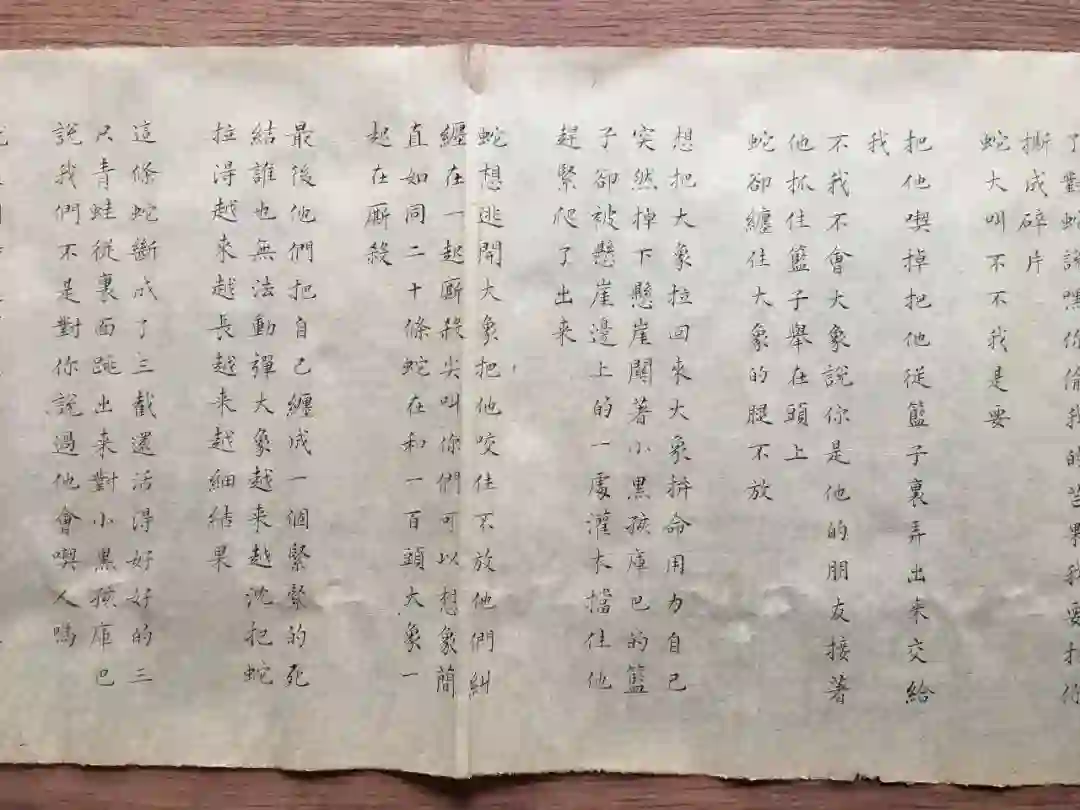 了對蛇說嘿你偷我的芒果我要把你
撕成碎片
蛇大叫不不我是要
把他喫掉把他從籃子裏弄出来交給
我
不我不會大象說你是他的朋友接著
他抓住籃子舉在頭上
蛇卻纏住大象的腿不放
想把大象拉回來大象拚命用力自己
突然掉下懸崖關著小黑孩庫巴的籃
子卻被懸崖邊上的一處灌木擋住他
趕緊爬了出来
蛇想逃開大象把他咬住不放他們糾
纏在一起厮殺尖叫你們可以想象簡
直如同二十條蛇在和一百頭大象一
起在厮殺
最後他們把自己纏成一個緊緊的死
結誰也無法動彈大象越来越沈把蛇
拉得越来越長越来越細結果
這條蛇斷成了三截還活得好好的三
只青蛙從裏面跳出来對小黑孩庫巴
說我們不是對你說過他會喫人嗎